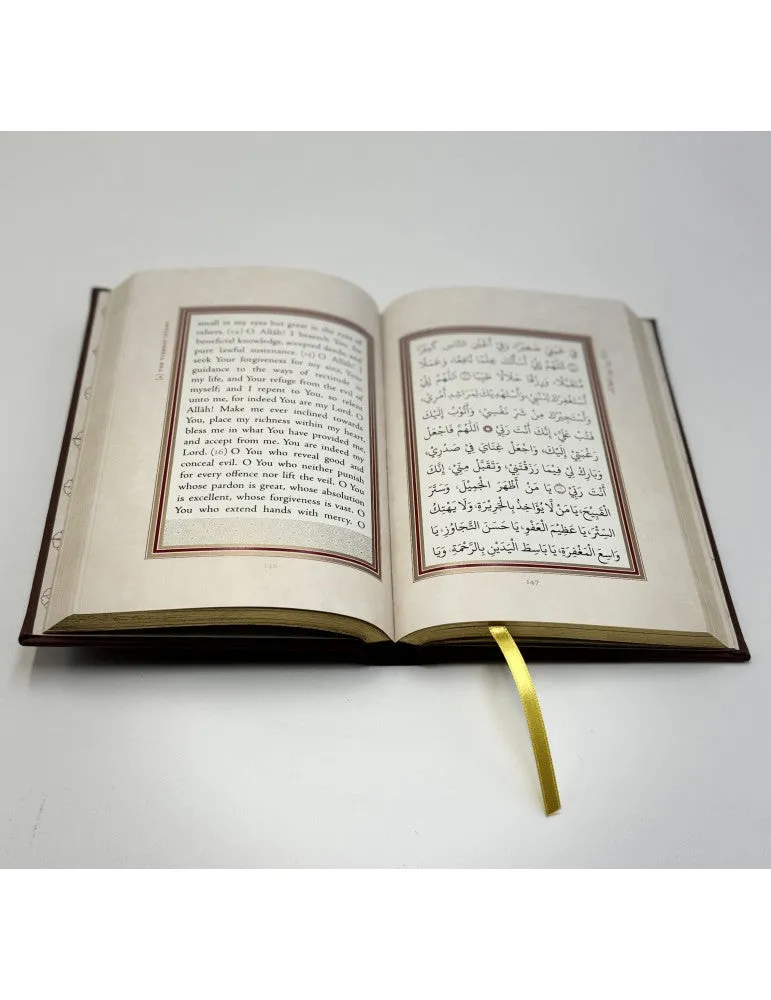 small in my eyes but great in the eyes of
others. (14) O Allāh! I beseech You for
beneficial knowledge, accepted deeds and
pure lawful sustenance. (15) O Allāh! I
seek Your forgiveness for my sins, Your
guidance to the ways of rectitude in
my life, and Your refuge from the evil of
myself; and I repent to You, so relent
unto me, for indeed You are my Lord. O
Allāh! Make me ever inclined towards
You, place my richness within my heart,
bless me in what You have provided me,
and accept from me. You are indeed my
Lord. (16) O You who reveal good and
conceal evil. O You who neither punish
for every offence nor lift the veil. O You
whose pardon is great, whose absolution
is excellent, whose forgiveness is vast. O
You who extend hands with mercy. O
146
فِي عَيْنِي صَغِيرًا، وَفِي أَعْيُنِ النَّاسِ كَبِيرًا
اَللَّهُمَّ إِنِّي أَسْأَلُكَ عِلْمًا نَافِعًا، وَعَمَلًا
مُتَقَبَّلًا، وَرِزْقًا حَلَالًا طَيِّبًا ۞ اَللَّهُمَّ إِنِّي
أَسْتَغْفِرُكَ لِذَنْبِي، وَأَسْتَهْدِيكَ لِمَرَاشِدِ أَمْرِي،
وَأَسْتَجِيرُكَ مِنْ شَرِّ نَفْسِي، وَأَتُوبُ إِلَيْكَ
فَتُبْ عَلَيَّ، إِنَّكَ أَنْتَ رَبِّي ۞ اَللَّهُمَّ فَاجْعَلْ
رَغْبَتِي إِلَيْكَ، وَاجْعَلْ غِنَايَ فِي صَدْرِي،
وَبَارِكْ لِي فِيمَا رَزَقْتَنِي، وَتَقَبَّلْ مِنِّي، إِنَّكَ
أَنْتَ رَبِّي ۞ يَا مَنْ أَظْهَرَ الْجَمِيلَ، وَسَتَرَ
الْقَبِيحَ، يَا مَنْ لَا يُؤَاخِذُ بِالْجَرِيرَةِ، وَلَا يَهْتِكُ
السِّتْرَ، يَا عَظِيمَ الْعَفْوِ، يَا حَسَنَ التَّجَاوُزِ، يَا
وَاسِعَ الْمَغْفِرَةِ، يَا بَاسِطَ الْيَدَيْنِ بِالرَّحْمَةِ، وَيَا
147